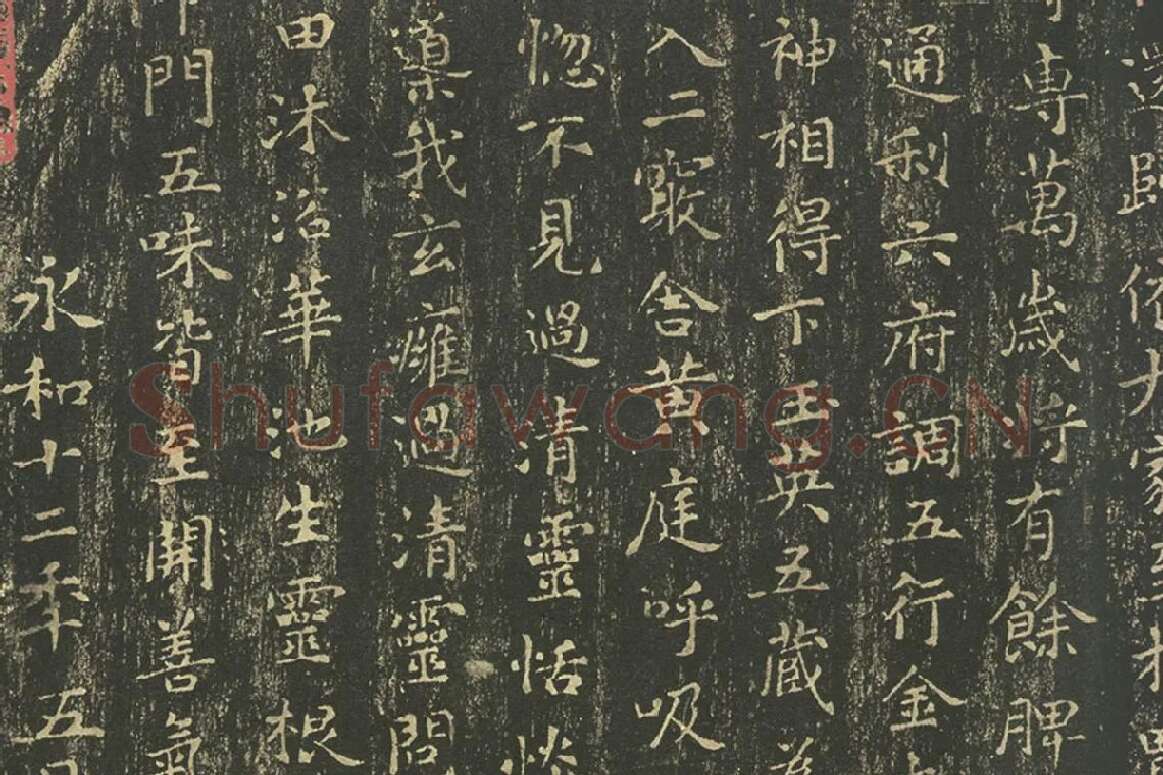 還歸依大家
專萬歲将有餘脾
通利六府調五行金
神相得下玉英五藏
入二竅舍黄庭呼吸
惚不見過清靈恬淡
渠我玄癰過清靈問
田沐浴華池生靈根
門五味皆至開善氣
永和十二年五
Shufawang.CN